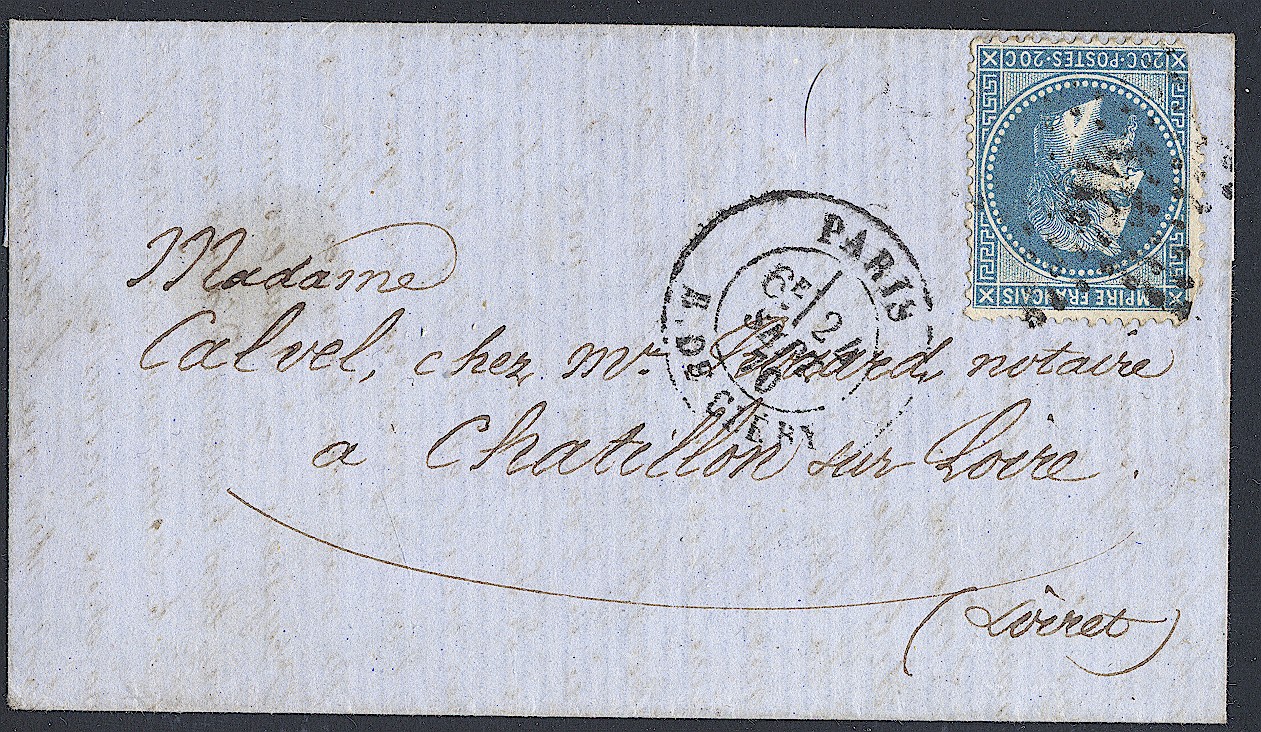 20C·POSTES·20C
EMPIRE FRANÇAIS
PARIS
6E 2
70
R. BOT CLERY
Madame
Calvel, chez Mr notaire
a Chatillon sur Loire.
(Loiret)